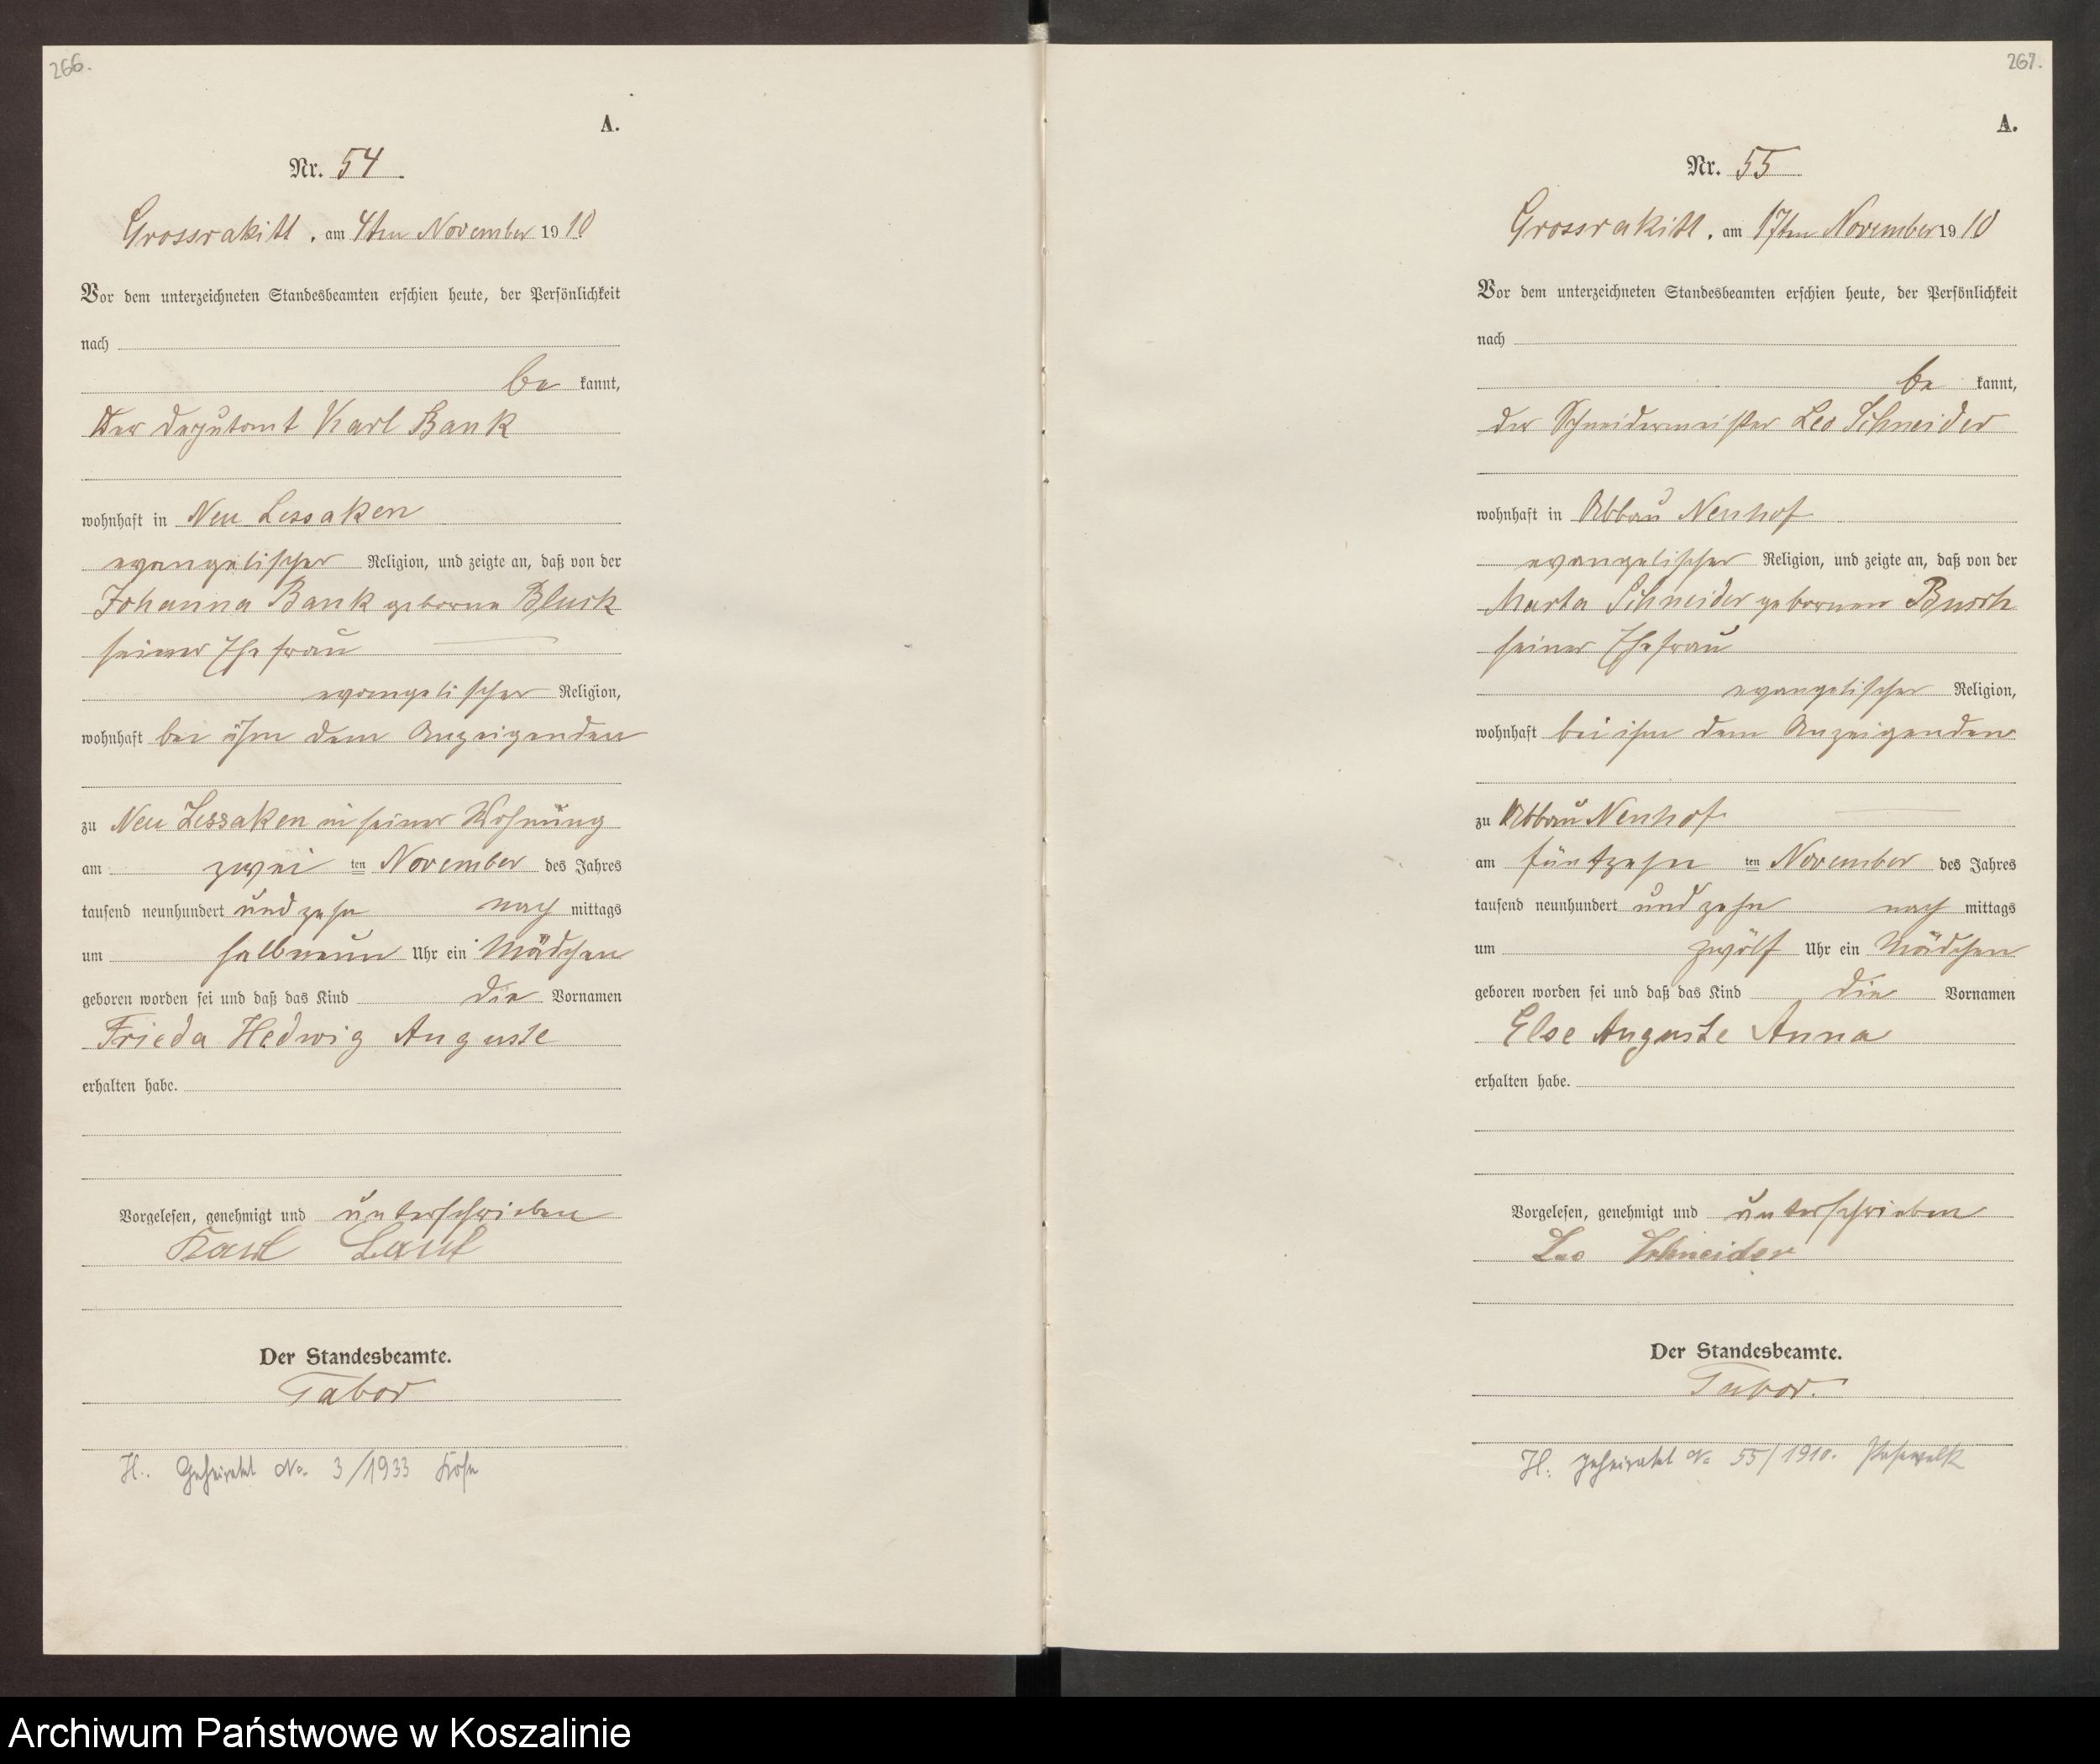 266.
A.
Nr. 54.
Grossrakitt, am 4ten November 1910
Vor dem unterzeichneten Standesbeamten erschien heute, der Persönlichkeit
nach
be kannt,
Der Deputant Karl Bank
wohnhaft in Neu Lessaken
evangelischer Religion, und zeigte an, daß von der
Johanna Bank geborne
seiner Ehefrau
evangelischer Religion,
wohnhaft bei ihm dem Anzeigenden
zu Neu Lessaken in seiner Wohnung
am zwei ten November des Jahres
tausend neunhundert und zehn nach mittags
um halbneun Uhr ein Mädchen
geboren worden sei und daß das Kind die Vornamen
Frieda Hedwig Auguste
erhalten habe.
Vorgelesen, genehmigt und unterschrieben
Karl
Der Standesbeamte.
Tabor
H. Geheiratet No. 3/1933
267.
A.
Nr. 55
Grossrakitt, am 17ten November 1910
Vor dem unterzeichneten Standesbeamten erschien heute, der Persönlichkeit
nach
be kannt,
der Schneidermeister Leo Schneider
wohnhaft in Abbau Neuhof
evangelischer Religion, und zeigte an, daß von der
Marta Schneider gebornen Busch
seiner Ehefrau
evangelischer Religion,
wohnhaft bei ihm dem Anzeigenden
zu Abbau Neuhof
am fünfzehn ten November des Jahres
tausend neunhundert und zehn nach mittags
um zwölf Uhr ein Mädchen
geboren worden sei und daß das Kind die Vornamen
Else Auguste Anna
erhalten habe.
Vorgelesen, genehmigt und unterschrieben
Leo Schneider
Der Standesbeamte.
Tabor.
H. geheiratet No 55/1910. Pasewalk
Archiwum Państwowe w Koszalinie